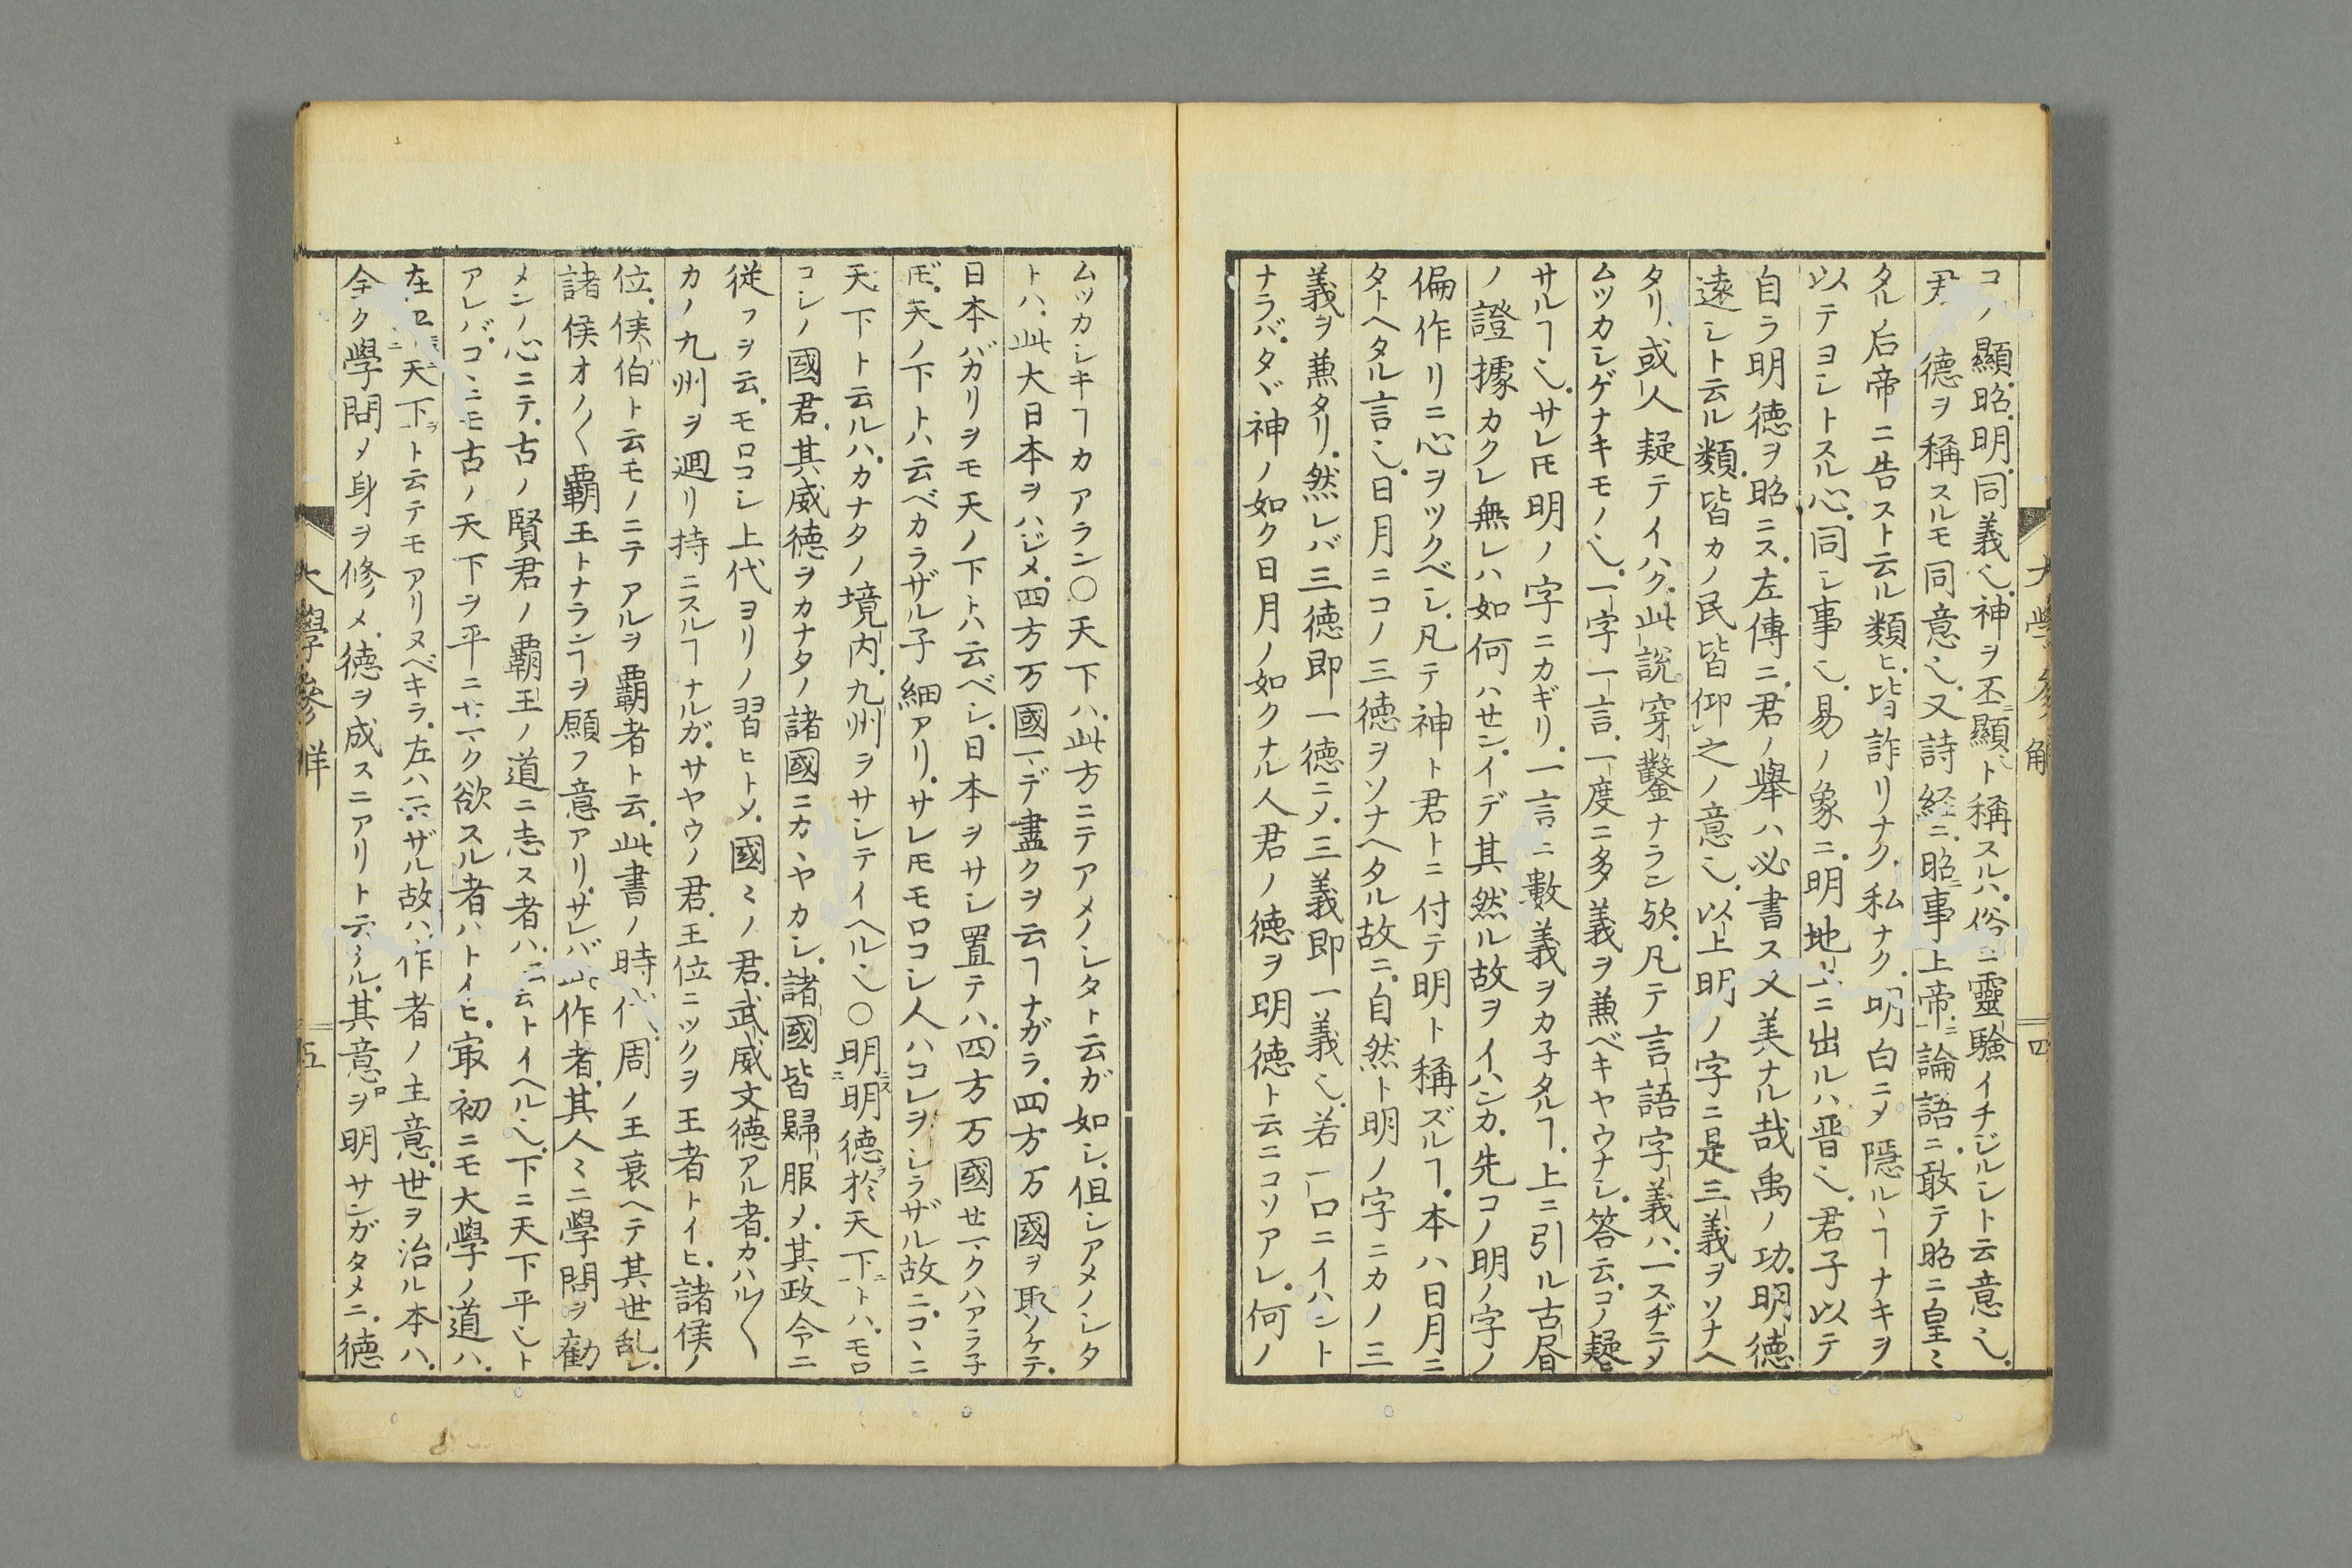 コノ顯昭明同義也神ヲ丕顯ト稱スルハ俗ニ靈驗イチジルシト云意也
君ノ徳ヲ稱スルモ同意也又詩経ニ昭事上帝論語ニ敢テ昭ニ皇〻
タル后帝ニ告スト云ル類ヒ皆詐リナク私ナク明白ニメ隠ルヽヿナキヲ
以テヨシトスル心同シ事也易ノ象ニ明地上ニ出ルハ晋也君子以テ
自ラ明徳ヲ昭ニス左傳ニ君ノ擧ハ必書ス又美ナル哉禹ノ功明徳
遠シト云ル類皆カノ民皆仰之ノ意也以上明ノ字ニ是三義ヲソナヘ
タリ或人疑テイハク此説穿鑿ナラン歟凡テ言語字義ハ一スヂニメ
ムツカシゲナキモノ也一字一言一度ニ多義ヲ兼ベキヤウナシ答云コノ疑ヒ
サルヿ也サレ𪜈明ノ字ニカギリ一言ニ數義ヲカ子タルヿ上ニ引ル古昼
ノ證據カクレ無レハ如何ハセンイデ其然ル故ヲイハンカ先コノ明ノ字ノ
偏作リニ心ヲツクベシ凡テ神ト君トニ付テ明ト稱ズルヿ本ハ日月ニ
タトヘタル言也日月ニコノ三徳ヲソナヘタル故ニ自然ト明ノ字ニカノ三
義ヲ兼タリ然レバ三徳即一徳ニメ三義即一義也若一口ニイハント
ナラバタヾ神ノ如ク日月ノ如クナル人君ノ徳ヲ明徳ト云ニコソアレ何ノ
大學參解 四
ムツカシキヿカアラン○天下ハ此方ニテアメノシタト云ガ如シ但シアメノシタ
トハ此大日本ヲハジメ四方万國マデ盡クヲ云ヿナガラ四方万國ヲ取ソケテ
日本バカリヲモ天ノ下トハ云ベシ日本ヲサシ置テハ四方万國廿マクハアラ子
𪜈天ノ下トハ云ベカラザル子細アリサレ𪜈モロコシ人ハコレヲシラザル故ニコヽニ
天下ト云ルハカナタノ境内九州ヲサシテイヘル也○明明徳於天下トハモロ
コシノ國君其威徳ヲカナタノ諸國ニカヾヤカシ諸國皆歸服メ其政令ニ
從フヲ云モロコシ上代ヨリノ習ヒトメ國〻ノ君武威文徳アル者カハル〳〵
カノ九州ヲ廻リ持ニスルヿナルガサヤウノ君王位ニツクヲ王者トイヒ諸侯ノ
位侯伯ト云モノニテアルヲ覇者ト云此書ノ時代周ノ王衰ヘテ其世乱レ
諸侯オノ〳〵覇王トナランヿヲ願フ意アリサレバ此作者其人〻ニ學問ヲ勸
メンノ心ニテ古ノ賢君ノ覇王ノ道ニ志ス者ハ云云トイヘル也下ニ天下平也ト
アレバコヽニモ古ノ天下ヲ平ニ廿マク欲スル者ハトイヒ㝡初ニモ大學ノ道ハ
在平天下ト云テモアリヌベキヲ左ハ云ザル故ハ作者ノ主意世ヲ治ル本ハ
全ク學問メ身ヲ修メ徳ヲ成スニアリト云ル其意ヲ明サンガタメニ徳
大學參解 五